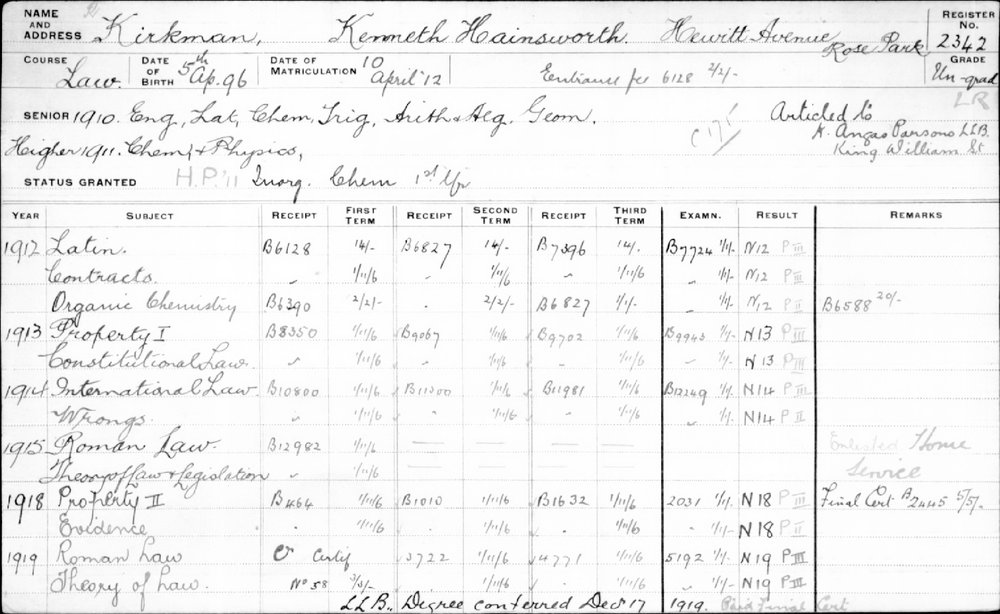 NAME AND ADDRESS Kirkman, Kenneth Hainsworth. Hewitt Avenue Rose Park REGISTER NO. 2342
COURSE Law. DATE OF BIRTH 5th Ap. 96 DATE OF MATRICULATION 10 April '12 Entrance fee 6128 2/2/- GRADE Un-grad
LR
SENIOR 1910. Eng, Lat, Chem, Trig, Arith & Alg, Geom. Articled to
Higher 1911. Chem, & Physics, H. Angas Parsons LLB.
King William St
STATUS GRANTED H.P. '11 Inorg. Chem 1st Yr
YEAR SUBJECT RECEIPT FIRST TERM RECEIPT SECOND TERM RECEIPT THIRD TERM EXAMN. RESULT REMARKS
1912 Latin. B6128 14/- B6827 14/- B7396 14/- B7724 1/1/- N12 P III
Contracts. " 1/11/6 " 1/11/6 " 1/11/6 " 1/1/- N12 P III
Organic Chemistry B6390 2/2/- " 2/2/- B6827 " 1/1/- N12 P II B6588 20/-
1913 Property I B8350 1/11/6 B9067 1/11/6 B9702 1/11/6 B9943 1/1/- N13 P III
Constitutional Law. " 1/11/6 " 1/11/6 " 1/11/6 " 1/1/- N13 P III
1914 International Law. B10800 1/11/6 B11300 1/11/6 B11981 1/11/6 B12249 1/1/- N14 P III
Wrongs. " 1/11/6 " 1/11/6 " 1/11/6 " 1/1/- N14 P II
1915 Roman Law. B12982 1/11/6 — — — — Enlisted Home
Theory of Law & Legislation " 1/11/6 Service
1918 Property II B464 1/11/6 B1010 1/11/6 B1632 1/11/6 2031 1/1/- N18 P III Final Cert B2445 5/5/-
Evidence " 1/11/6 " 1/11/6 " 1/11/6 " 1/1/- N18 P II
1919 Roman Law Certif 3722 1/11/6 4771 1/11/6 5192 1/1/- N19 P III
Theory of Law. No 58 3/3/- 1/11/6 " 1/11/6 " 1/1/- N19 P III
LLB. Degree conferred Dec 17 1919. Paid Final Cert